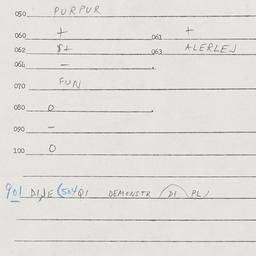 050 PURPUR
060 + 061 +
062 $+ 063 ALERLEJ
064 -
070 FUN
080 O
090 -
100 O
901 DIJE (504 Q1 DEMONSTR DI PL)